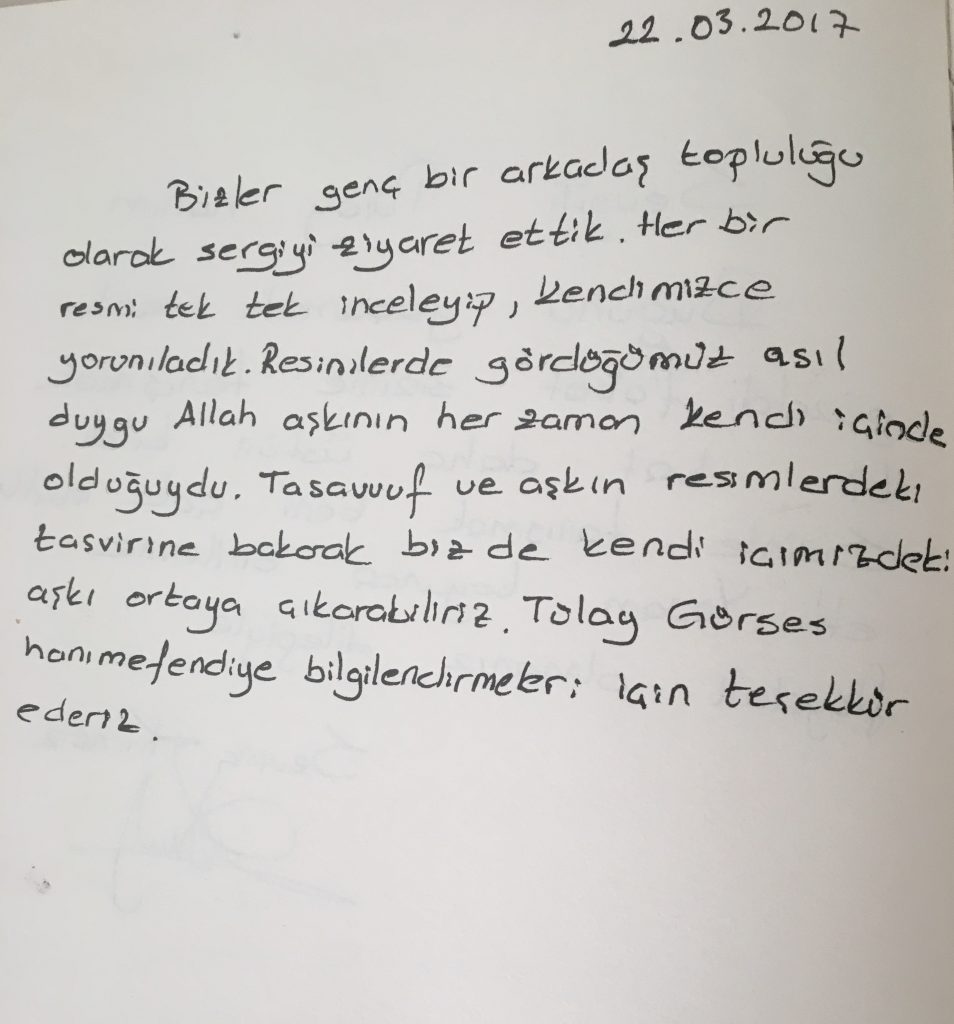 22.03.2017
Bizler genç bir arkadaş topluluğu
olarak sergiyi ziyaret ettik. Her bir
resmi tek tek inceleyip, kendimizce
yorumladık. Resimlerde gördüğümüz asıl
duygu Allah aşkının her zaman kendi içinde
olduğuydu. Tasavvuf ve aşkın resimlerdeki
tasvirine bakarak biz de kendi içimizdeki
aşkı ortaya çıkarabiliriz. Tülay Gürses
hanımefendiye bilgilendirmeleri için teşekkür
ederiz.